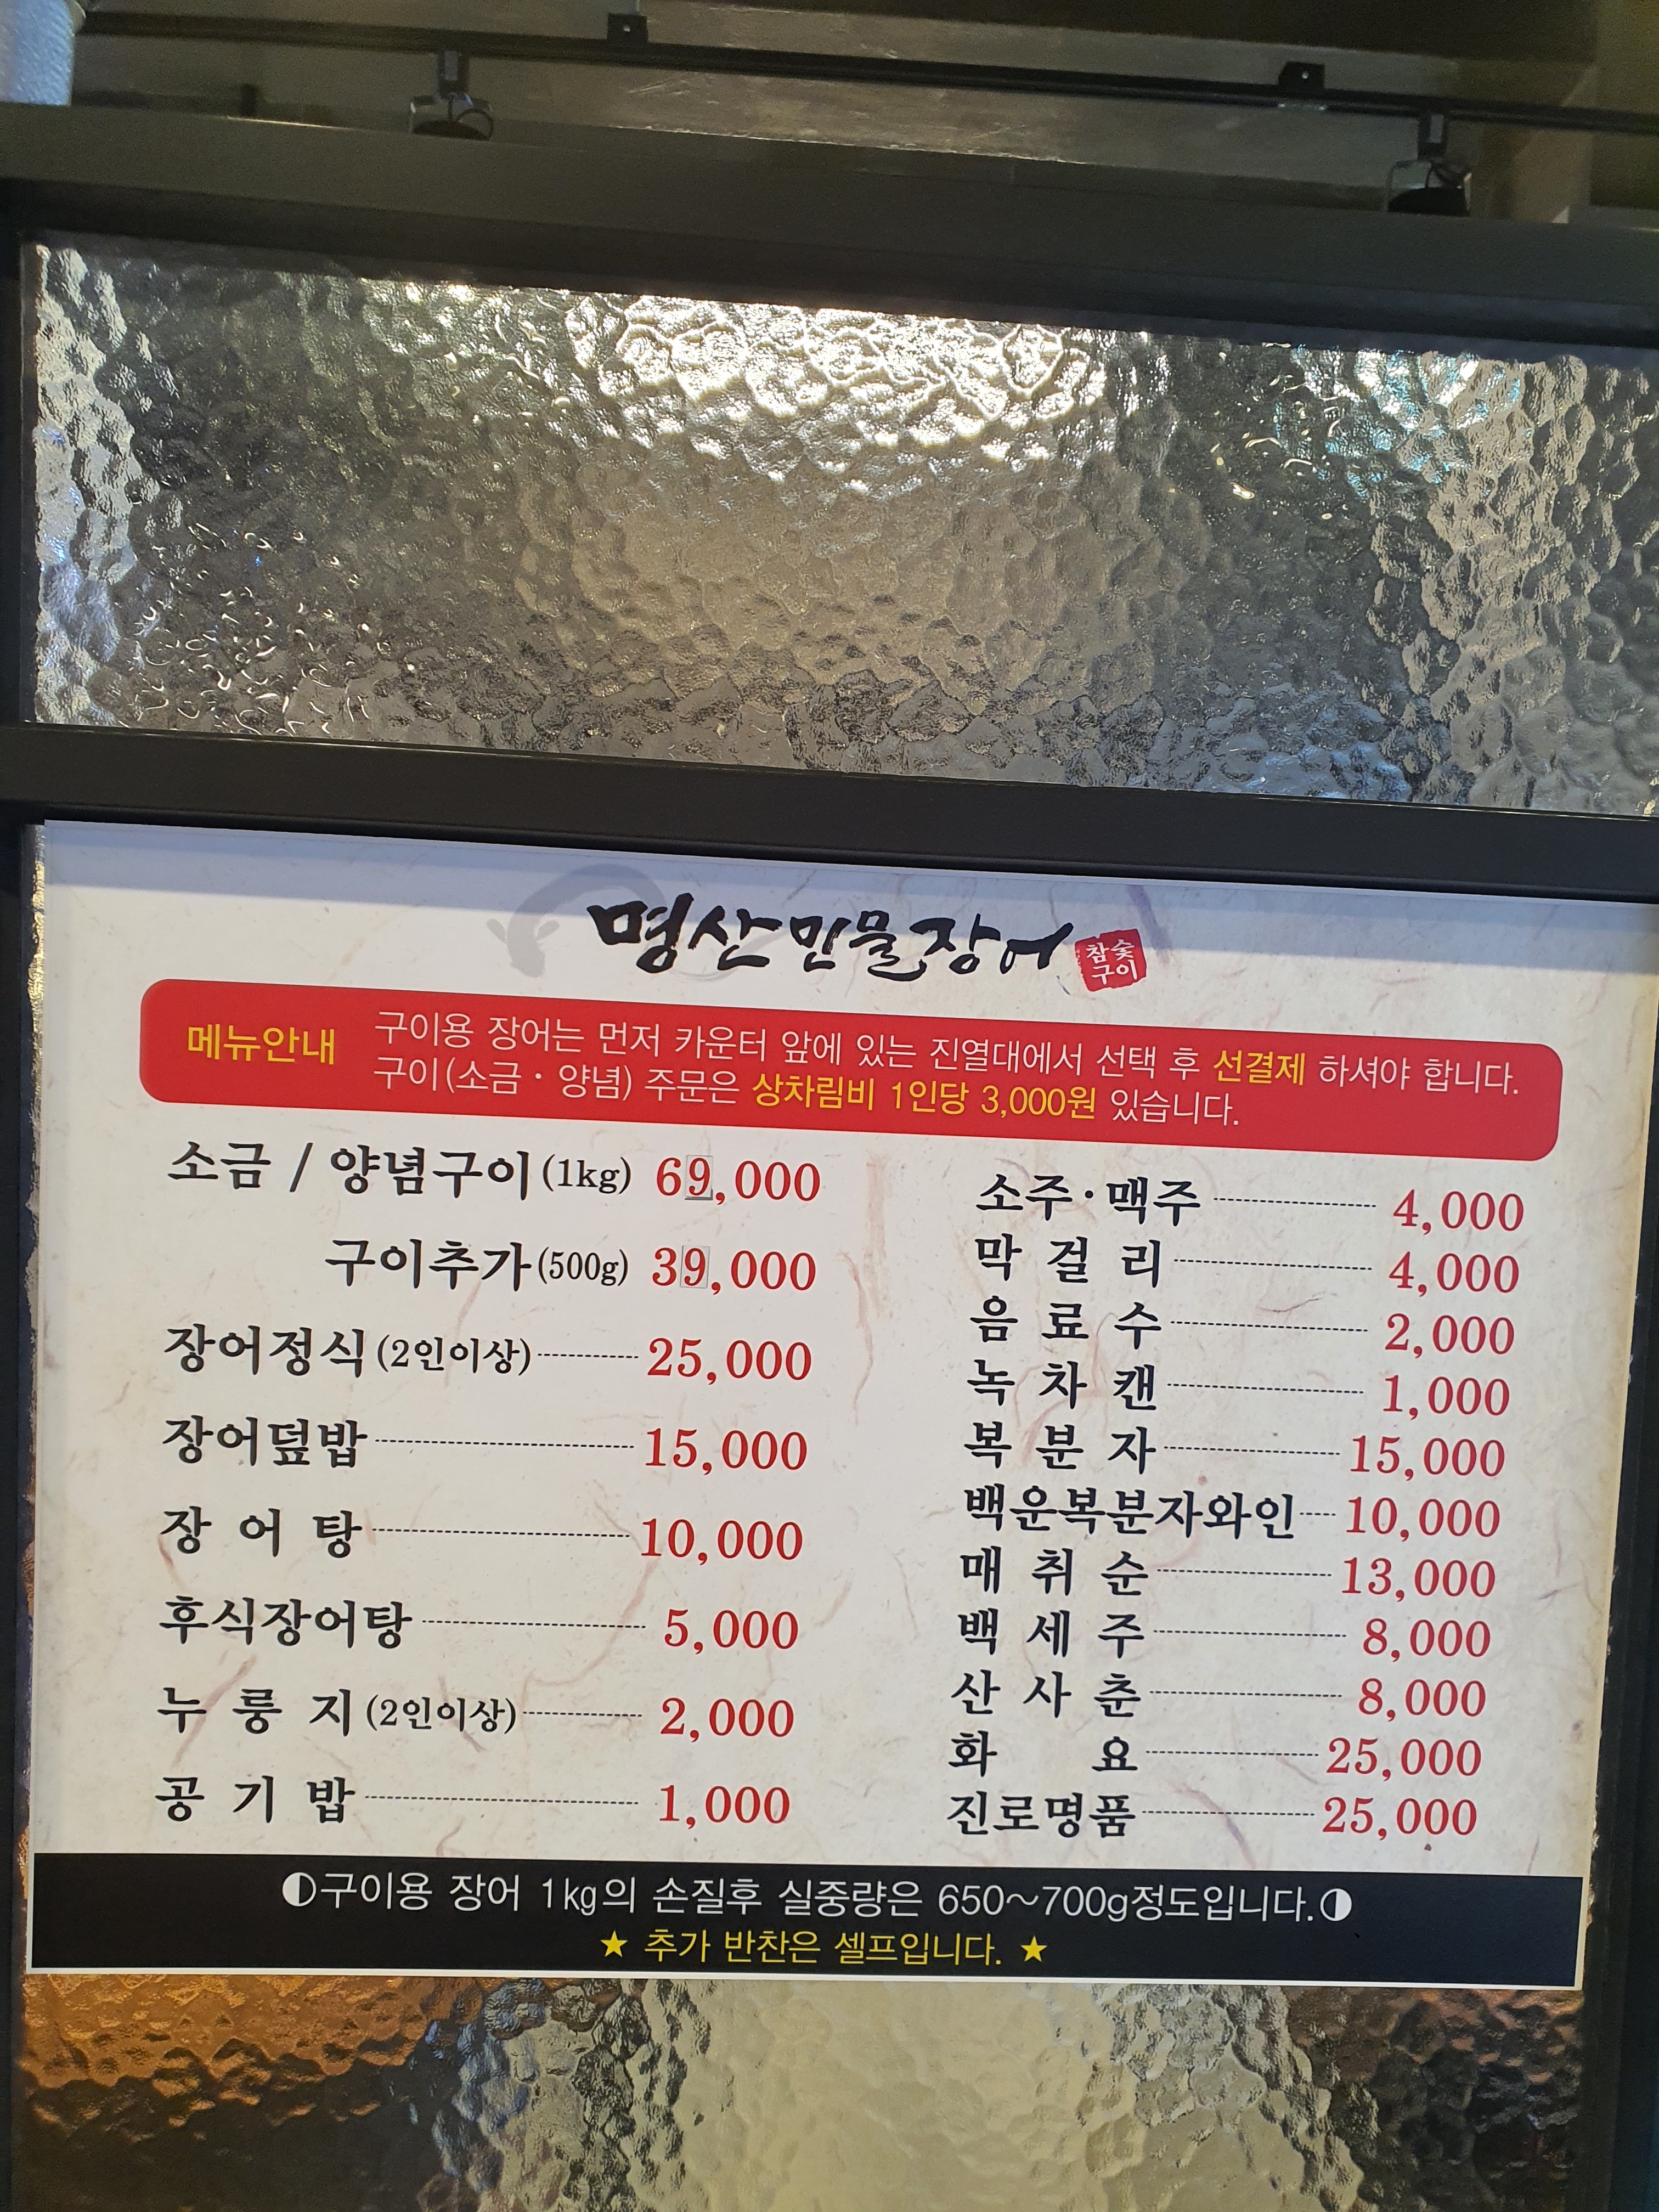 명산민물장어 참숯
구이
메뉴안내
구이용 장어는 먼저 카운터 앞에 있는 진열대에서 선택 후 선결제 하셔야 합니다.
구이(소금・양념) 주문은 상차림비 1인당 3,000원 있습니다.
소금 / 양념구이(1kg) 69,000
구이추가(500g) 39,000
장어정식(2인이상) 25,000
장어덮밥 15,000
장 어 탕 10,000
후식장어탕 5,000
누 룽 지(2인이상) 2,000
공 기 밥 1,000
소주・맥주 4,000
막 걸 리 4,000
음 료 수 2,000
녹 차 캔 1,000
복 분 자 15,000
백운복분자와인 10,000
매 취 순 13,000
백 세 주 8,000
산 사 춘 8,000
화 요 25,000
진로명품 25,000
◐구이용 장어 1kg의 손질후 실중량은 650~700g정도입니다.◑
★ 추가 반찬은 셀프입니다. ★